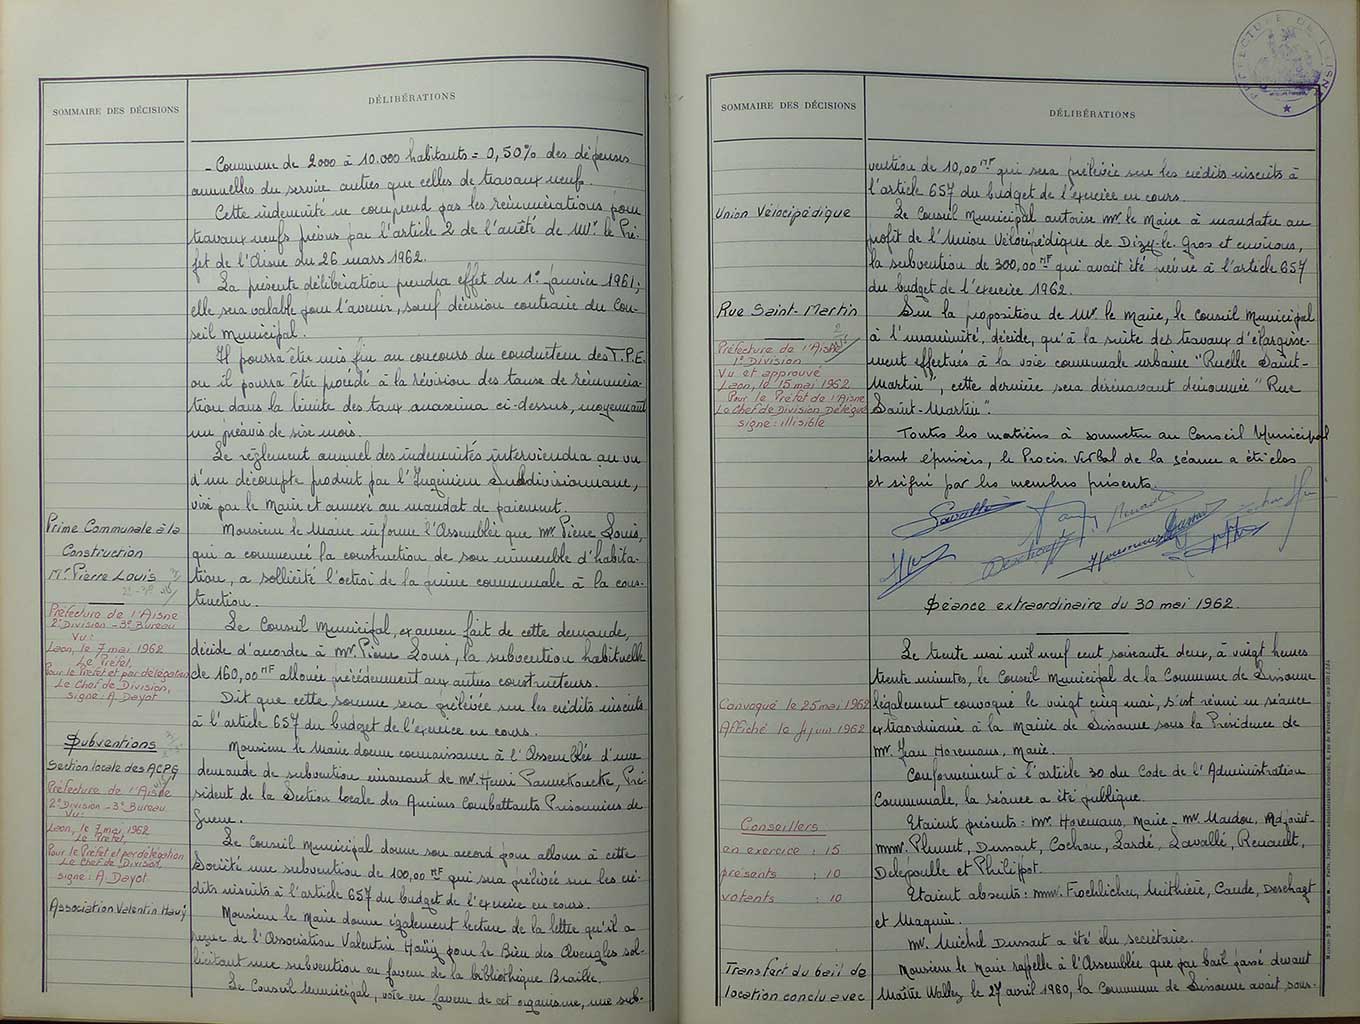 SOMMAIRE DES DÉCISIONS
DÉLIBÉRATIONS
- Commune de 2000 à 10.000 habitants = 0,50% des dépenses
annuelles du service autres que celles de travaux neufs.
Cette indemnité ne comprend pas les rémunérations pour
travaux neufs prévus par l'article 2 de l'arrêté de Mr. le Pré-
fet de l'Aisne du 26 mars 1962.
La présente délibération prendra effet du 1er janvier 1961;
elle sera valable pour l'avenir, sauf décision contraire du Con-
seil Municipal.
Il pourra être mis fin au concours du conducteur des T.P.E.
ou il pourra être procédé à la révision des taux de rémunéra-
tion dans la limite des taux maxima ci-dessus, moyennant
un préavis de six mois.
Le règlement annuel des indemnités interviendra au vu
d'un décompte produit par l'Ingénieur Subdivisionnaire,
visé par le Maire et annexé au mandat de paiement.
Prime Communale à la
Construction
Mr Pierre Louis
Préfecture de l'Aisne
2e Division - 3e Bureau
Vu:
Laon, le 7 mai 1962
Le Préfet,
Pour le Préfet et par délégation
Le Chef de Division,
signé: A. Dayot
Monsieur le Maire informe l'Assemblée que Mr. Pierre Louis,
qui a commencé la construction de son immeuble d'habita-
tion, a sollicité l'octroi de la prime communale à la cons-
truction.
Le Conseil Municipal, examen fait de cette demande,
décide d'accorder à Mr. Pierre Louis, la subvention habituelle
de 160,00 NF allouée précédemment aux autres constructeurs.
Dit que cette somme sera prélevée sur les crédits inscrits
à l'article 657 du budget de l'exercice en cours.
Subventions
Section locale des ACPG
Préfecture de l'Aisne
2e Division - 3e Bureau
Vu:
Laon, le 7 mai 1962
Le Préfet,
Pour le Préfet et par délégation
Le Chef de Division,
signé: A. Dayot
Monsieur le Maire donne connaissance à l'Assemblée d'une
demande de subvention émanant de Mr. Henri Pannekoucke, Pré-
sident de la Section locale des Anciens Combattants Prisonniers de
Guerre.
Le Conseil Municipal donne son accord pour allouer à cette
Société une subvention de 100,00 NF qui sera prélevée sur les cré-
dits inscrits à l'article 657 du budget de l'exercice en cours.
Association Valentin Haüy
Monsieur le Maire donne également lecture de la lettre qu'il a
reçue de l'Association Valentin Haüy pour le Bien des Aveugles sol-
licitant une subvention en faveur de la bibliothèque Braille.
Le Conseil Municipal, vote en faveur de cet organisme, une sub-
PRÉFECTURE DE L'AISNE
SOMMAIRE DES DÉCISIONS
DÉLIBÉRATIONS
vention de 10,00 NF qui sera prélevée sur les crédits inscrits à
l'article 657 du budget de l'exercice en cours.
Union Vélocipédique
Le Conseil Municipal autorise Mr. le Maire à mandater au
profit de l'Union Vélocipédique de Dizy-le-Gros et environs,
la subvention de 300,00 NF qui avait été prévue à l'article 657
du budget de l'exercice 1962.
Rue Saint-Martin
Préfecture de l'Aisne
1e Division
Vu et approuvé
Laon, le 15 mai 1962
Pour le Préfet de l'Aisne
Le Chef de Division Délégué
signé: illisible
Sur la proposition de Mr. le Maire, le Conseil Municipal
à l'unanimité, décide, qu'à la suite des travaux d'élargisse-
ment effectués à la voie communale urbaine "Ruelle Saint-
Martin", cette dernière sera dorénavant dénommée "Rue
Saint-Martin".
Toutes les matières à soumettre au Conseil Municipal
étant épuisées, le Procès Verbal de la séance a été clos
et signé par les membres présents.
Séance extraordinaire du 30 mai 1962.
Convoqué le 25 mai 1962
Affiché le 4 juin 1962
Le trente mai mil neuf cent soixante deux, à vingt heures
trente minutes, le Conseil Municipal de la Commune de Sissonne
légalement convoqué le vingt cinq mai, s'est réuni en séance
extraordinaire à la mairie de Sissonne sous la Présidence de
Mr. Jean Horemans, Maire.
Conformément à l'article 30 du Code de l'Administration
Communale, la séance a été publique.
Conseillers
en exercice : 15
présents : 10
votants : 10
Etaient présents: Mr. Horemans, Maire - Mr. Maudou, Adjoint-
MMrs. Plumet, Dussart, Cochon, Lardé, Lavallé, Renault,
Delépoulle et Philipot.
Etaient absents: MMrs. Froehlicher, Mithière, Caude, Deschagt
et Maquin.
Mr. Michel Dussart a été élu secrétaire.
Transfert du bail de
location conclu avec
Monsieur le Maire rappelle à l'Assemblée que par bail passé devant
Maître Wallez le 27 avril 1960, la Commune de Sissonne avait sous-